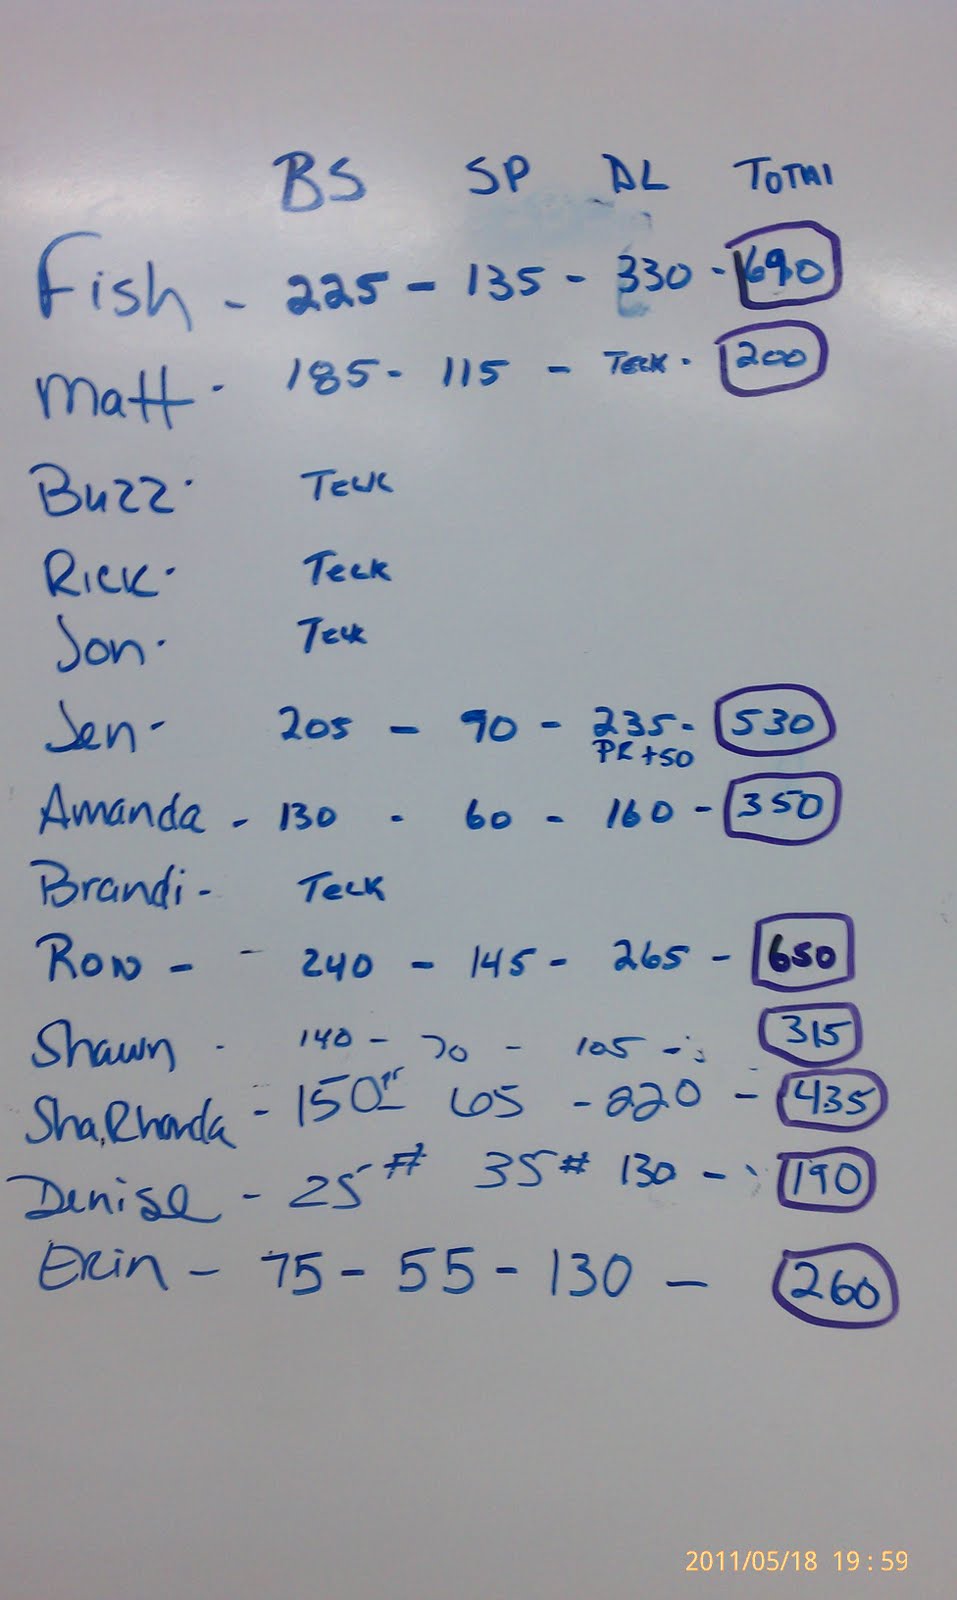 BS SP DL TOTAl
Fish - 225 - 135 - 330 - 690
Matt - 185 - 115 - TECK - 200
Buzz - TECK
Rick - TECK
Jon - TECK
Jen - 205 - 90 - 235 - 530
PR +50
Amanda - 130 - 60 - 160 - 350
Brandi - TECK
Ron - - 240 - 145 - 265 - 650
Shawn - 140 - 70 - 105 - 315
Sha,Rhonda - 150 65 - 220 - 435
Denise - 25# 35# 130 - 190
Erin - 75 - 55 - 130 - 260
2011/05/18 19:59